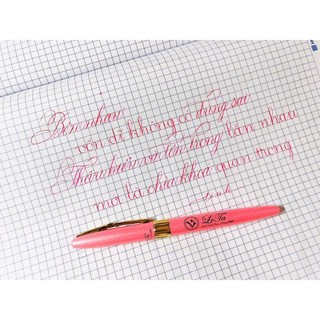 Bên nhau
vốn dĩ không có đúng sai
Thấu hiểu và tôn trọng lẫn nhau
mới là chìa khoá quan trọng